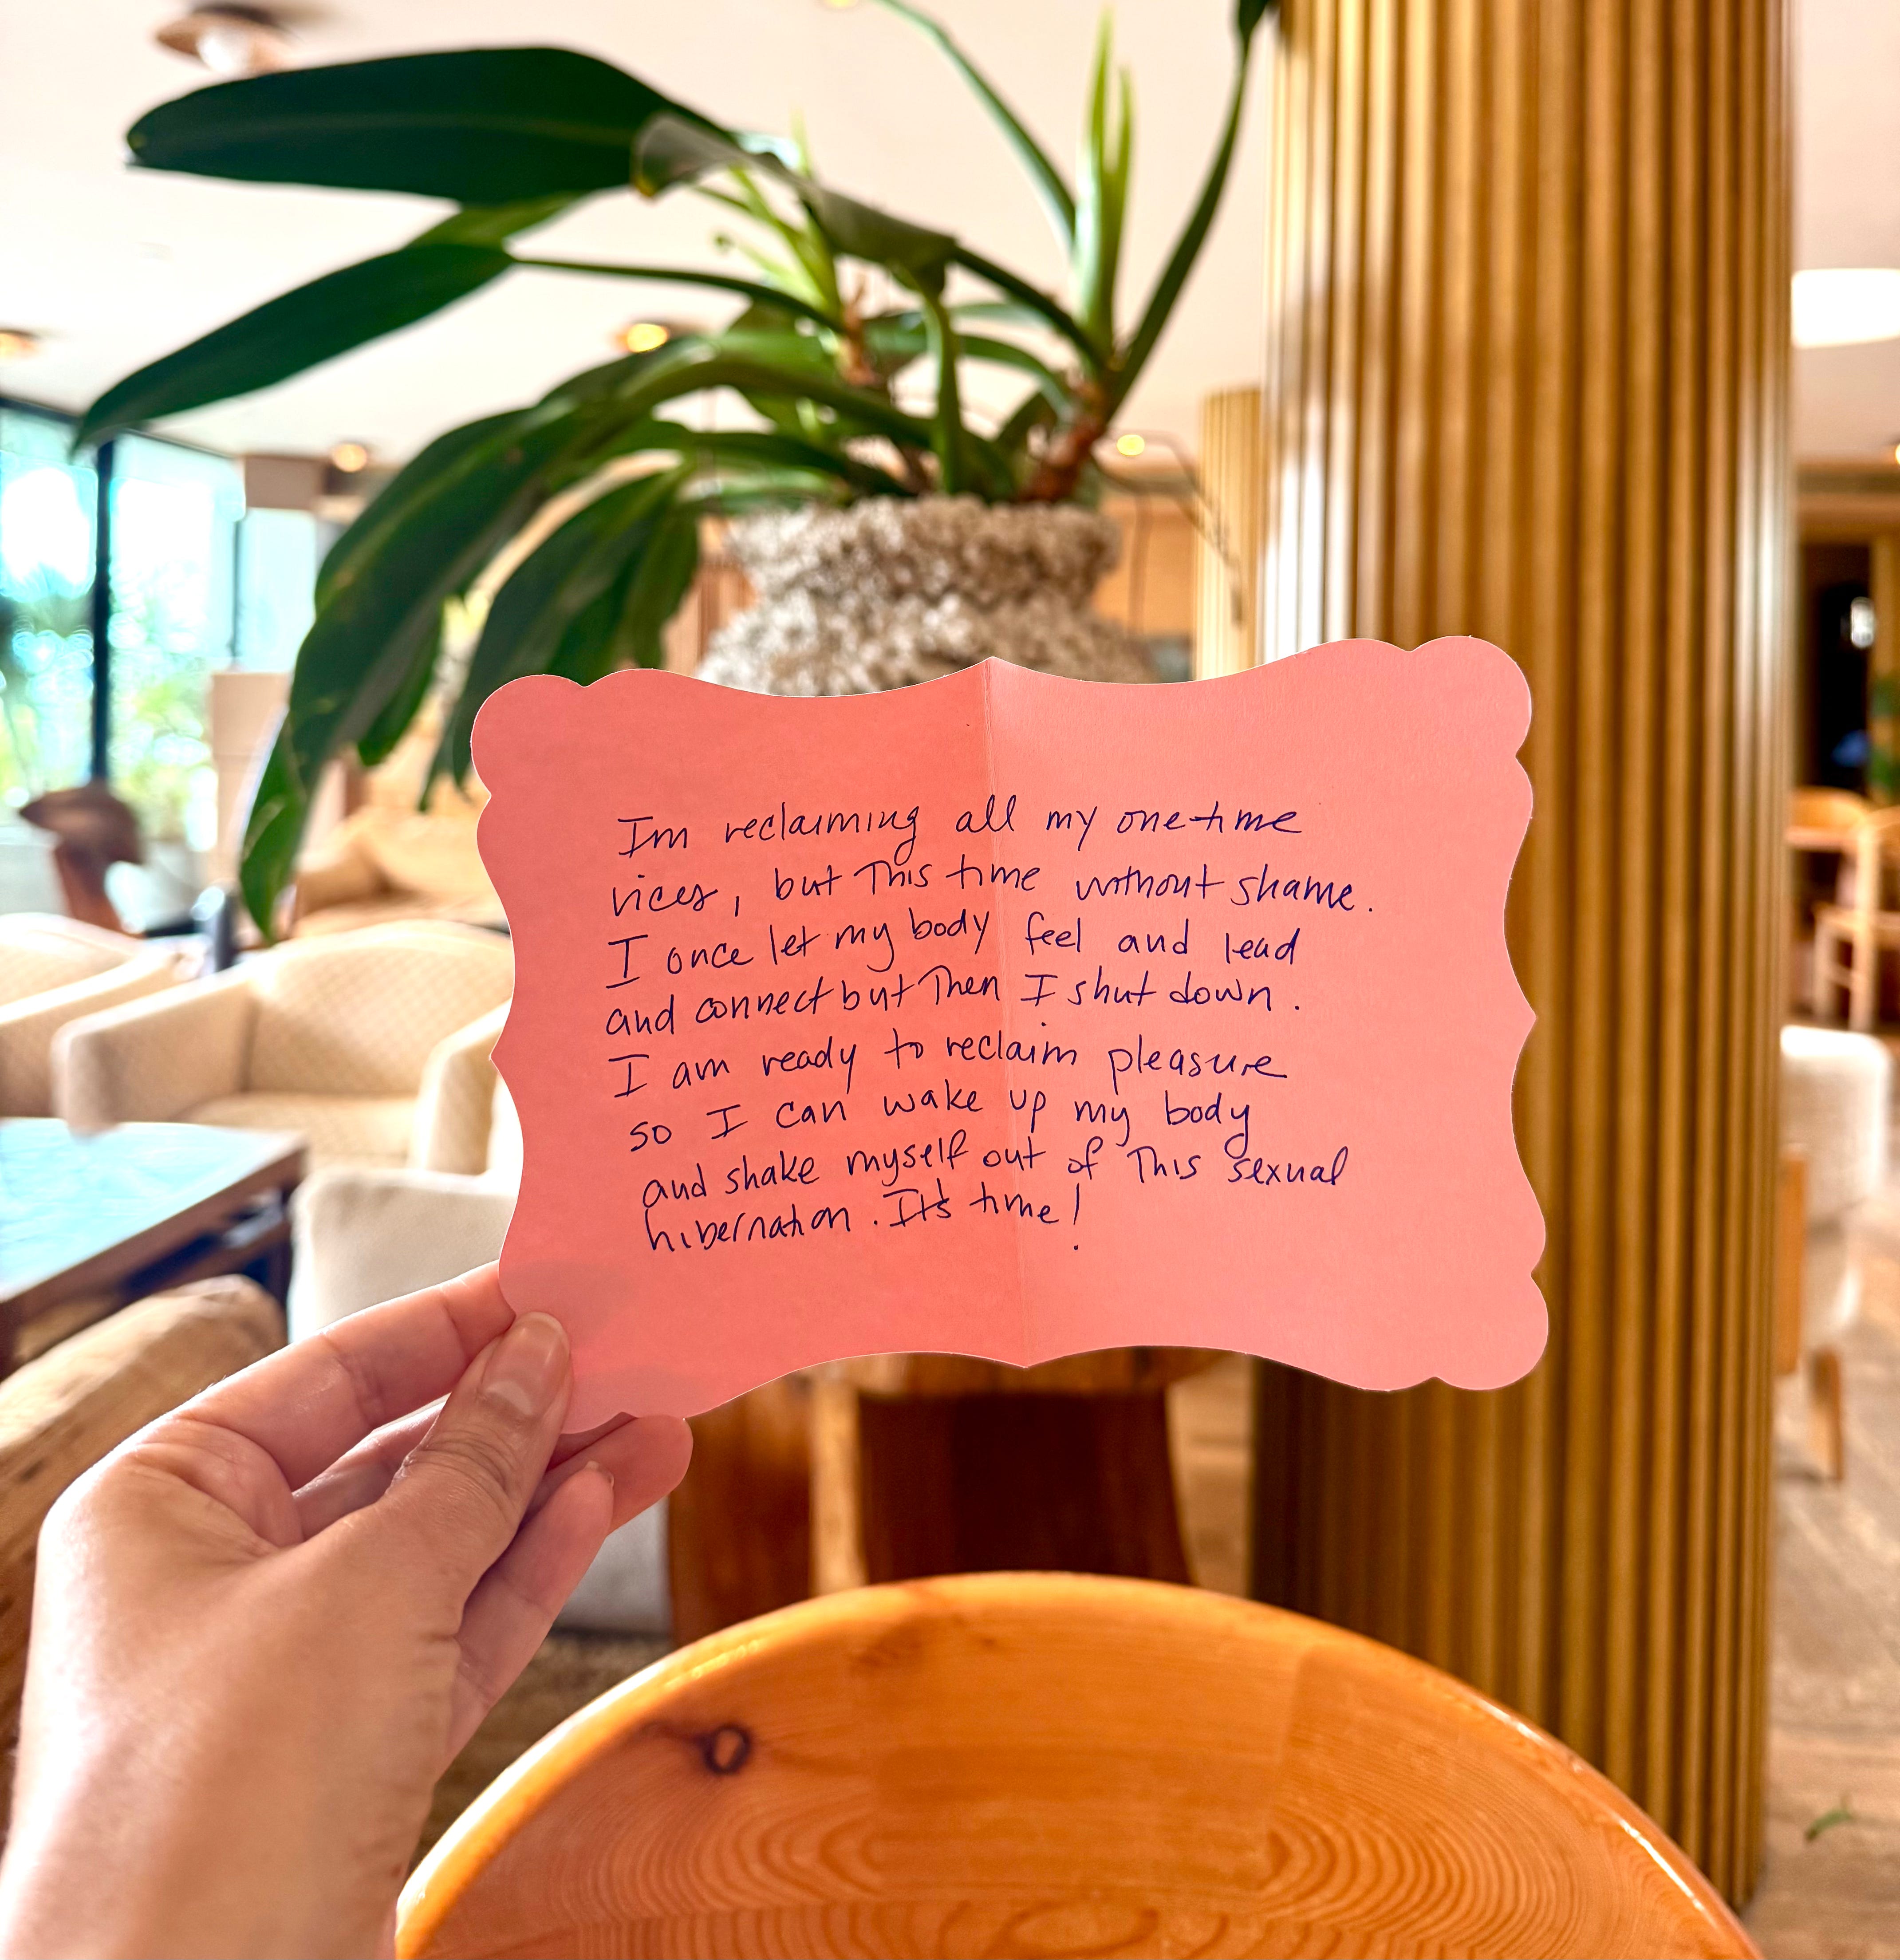 Im reclaiming all my one-time
vices, but this time without shame.
I once let my body feel and lead
and connect but then I shut down.
I am ready to reclaim pleasure
so I can wake up my body
and shake myself out of this sexual
hibernation. It's time!